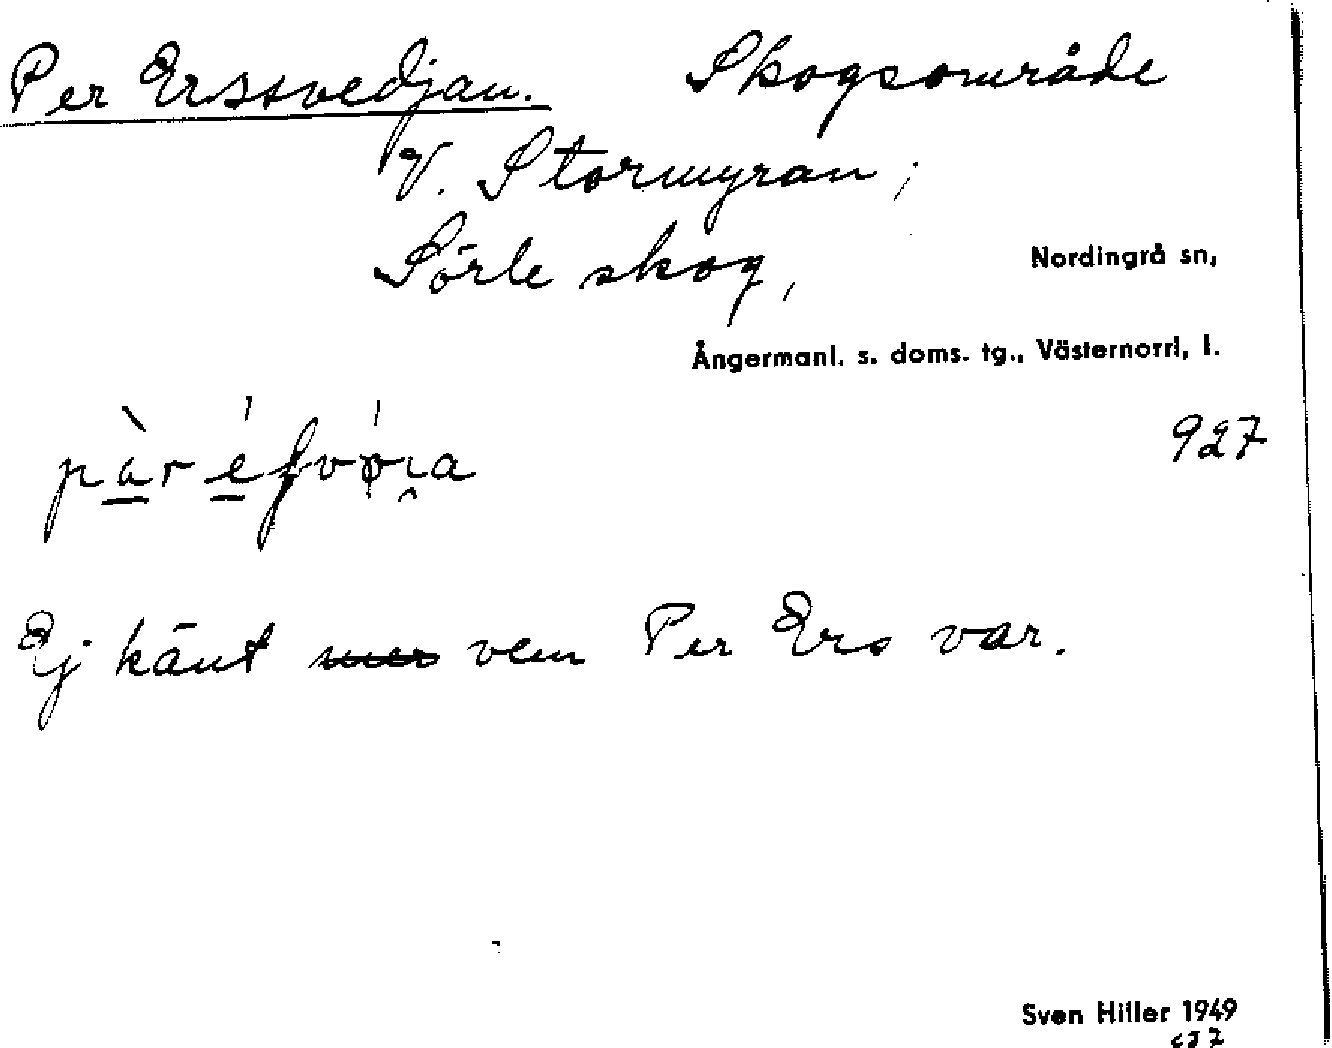 Per Erssvedjan. Skogsområde
V. Stormyran;
Sörle skog,
Nordingrå sn,
Ångermanl. s. doms. tg., Västernorrl, l.
927
Ej känt vem Per Ers var.
Sven Hiller 1949